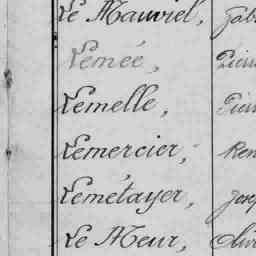 Le Mauviel,
Lemée, Pierr
Lemelle, Pierr
Lemercier, Ren
Lemétayer, Jose
Le Meur, Olivi